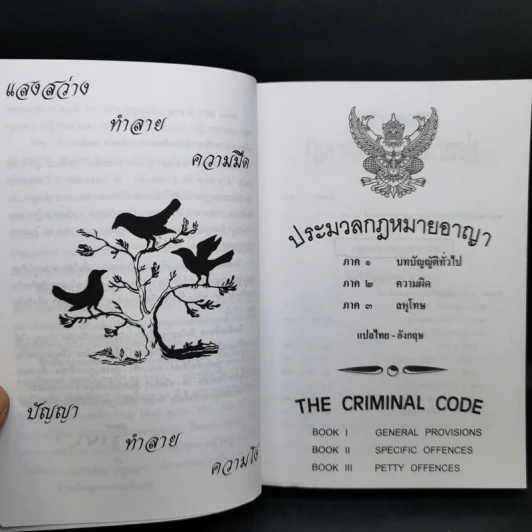 แสงสว่าง
ทำลาย
ความมืด
ปัญญา
ทำลาย
ประมวลกฎหมายอาญา
ภาค ๑ บทบัญญัติทั่วไป
ภาค ๒ ความผิด
ภาค ๓ ลหุโทษ
แปลไทย - อังกฤษ
THE CRIMINAL CODE
BOOK I GENERAL PROVISIONS
BOOK II SPECIFIC OFFENCES
BOOK III PETTY OFFENCES